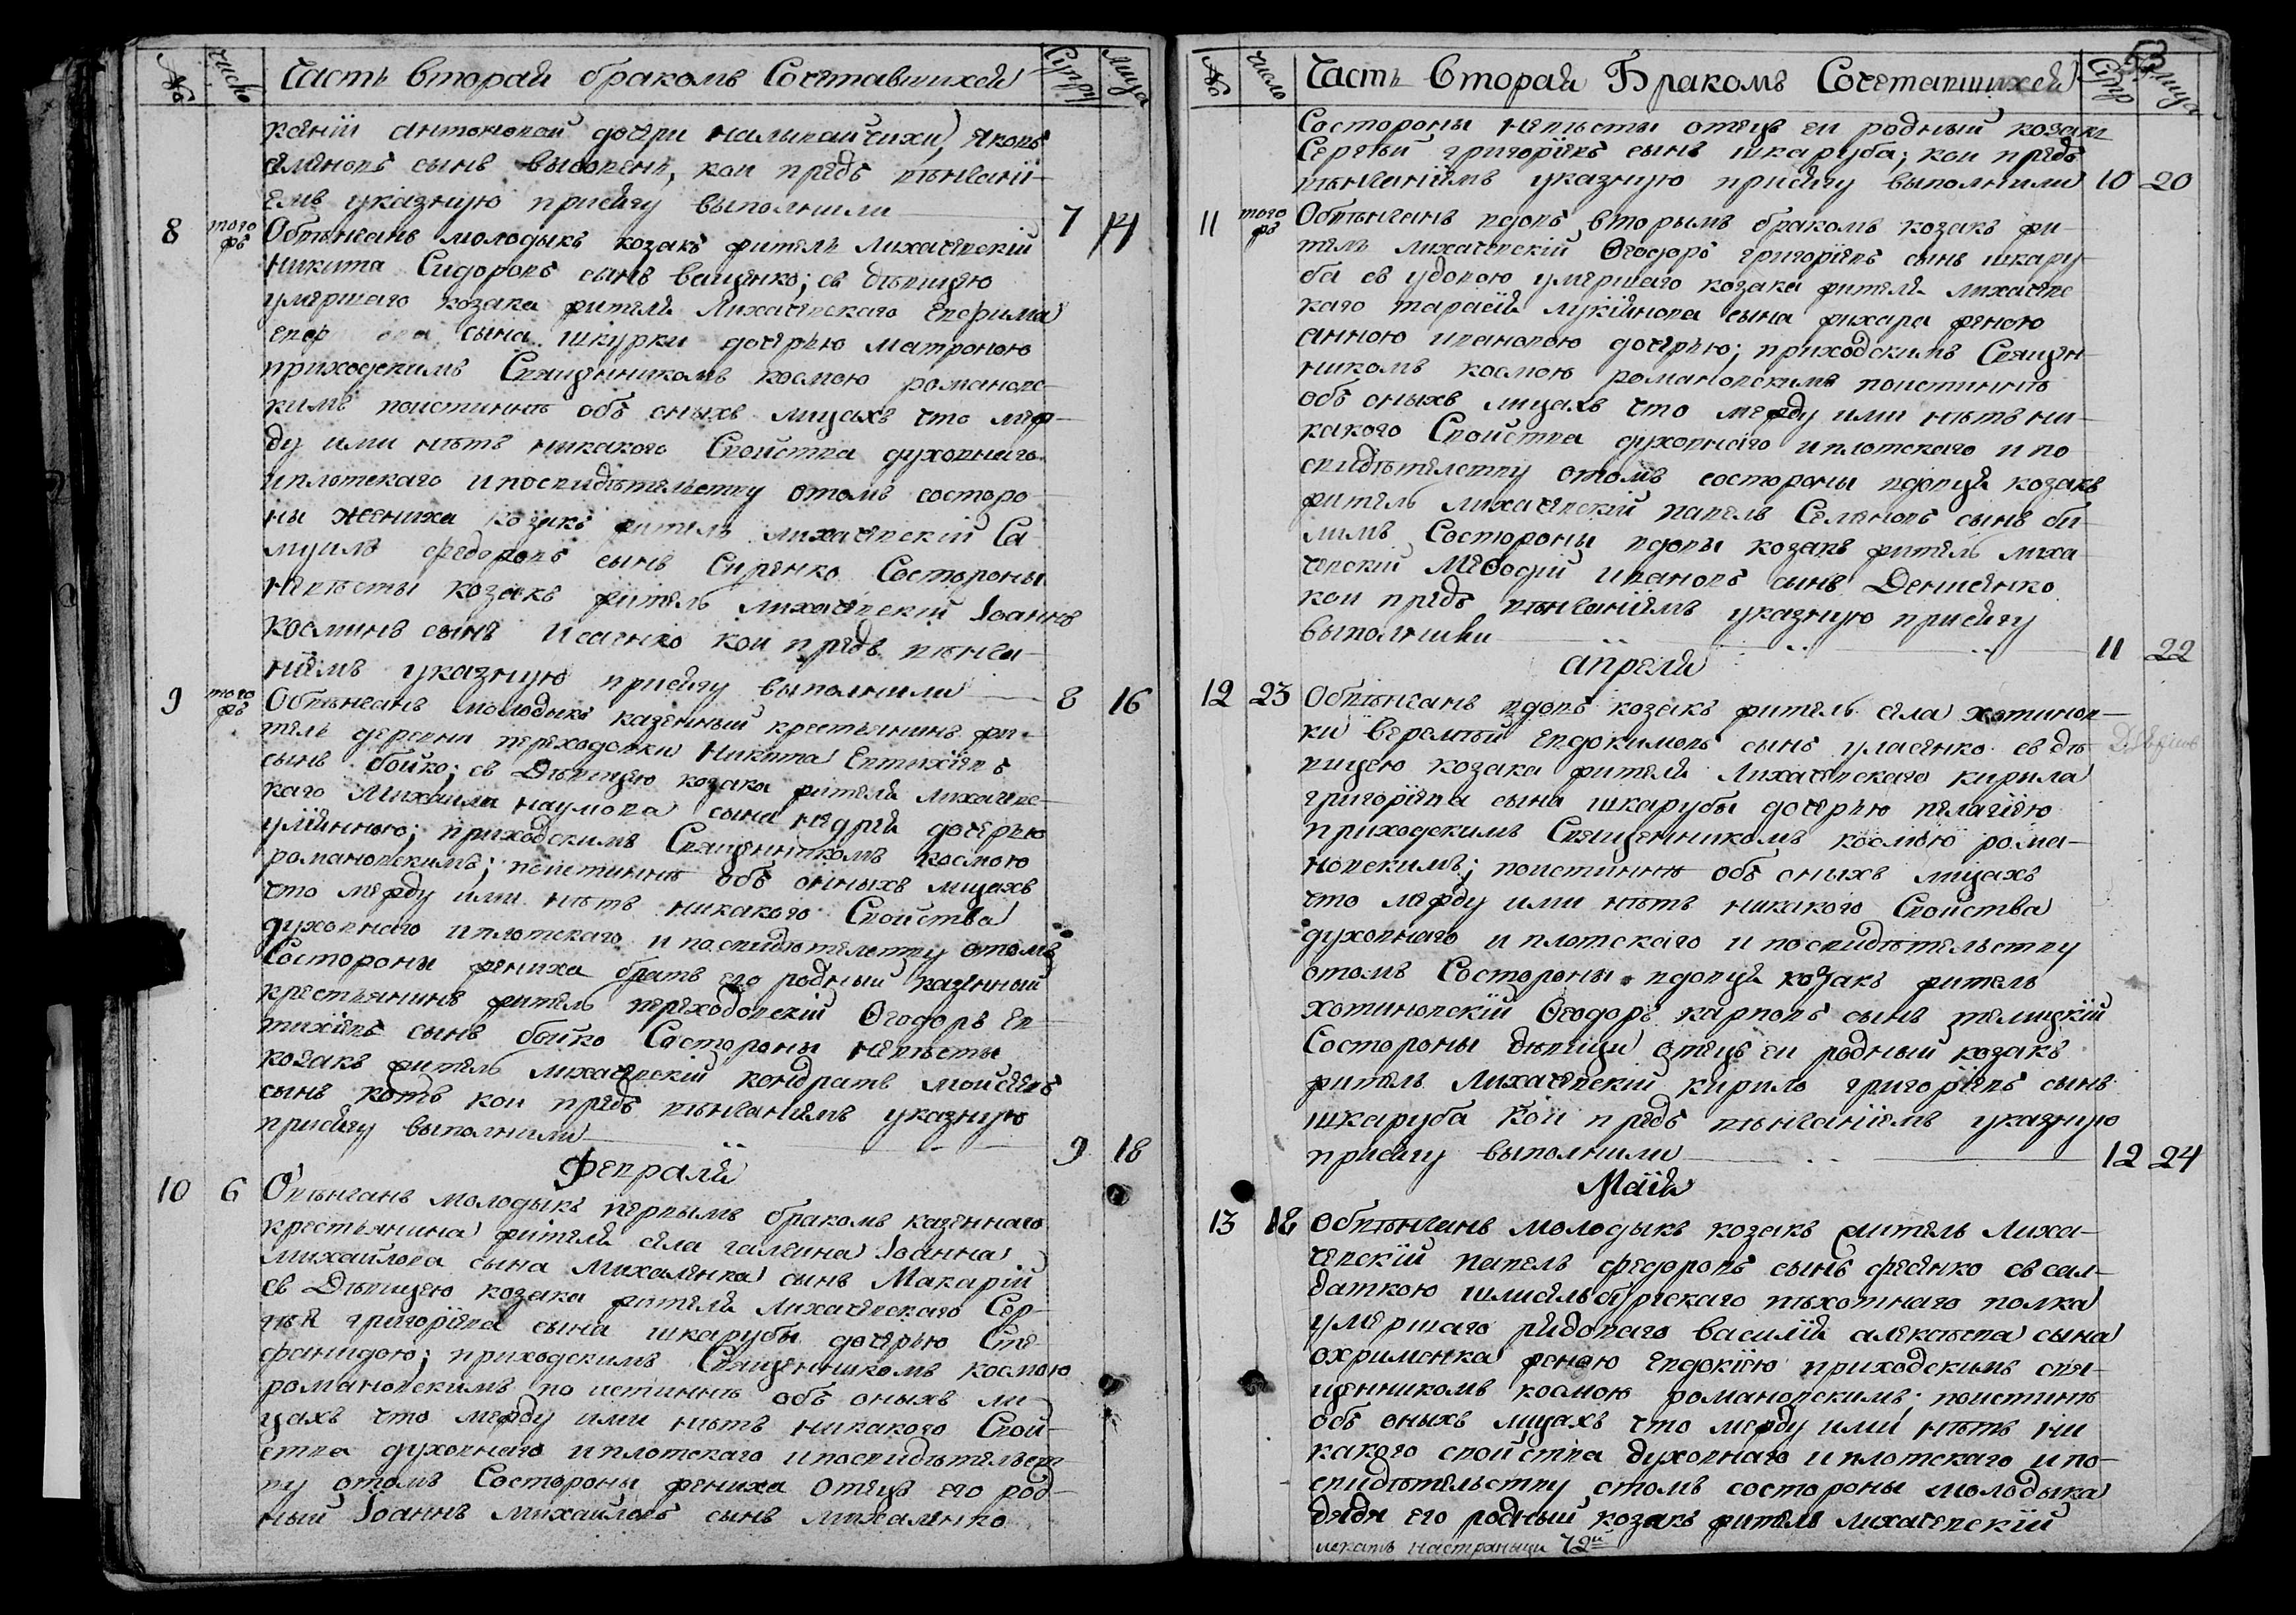 № число Часть вторая бракомъ Сочетавшихся Супру лица
ксніи антоновой дочери налывайчихи, яковъ
семеновъ сынъ высопенъ, кои предъ вѣнчані-
емъ указную присягу выполнили 7 14
8 того жъ Обвѣнчанъ молодыкъ козакъ житель лихачевскій
Никита Сидоровъ сынъ ващенко; съ дѣвицею
умершаго козака жителя Лихачевскаго Евфима
сына шкурки дочерью матроною
приходскимъ Священникомъ космою романовс-
кимъ поистиннѣ объ оныхъ лицахъ что меж-
ду ими нѣтъ никакого Свойства духовнаго
и плотскаго и посвидѣтельству отомъ состoро-
ны жениха козакъ житель лихачевскій Са-
муилъ федоровъ сынъ Сиренко Состороны
невѣсты козакъ житель лихачевскій Іоаннъ
косминъ сынъ исаенко кои предъ вѣнча-
ніемъ указную присягу выполнили 8 16
9 того жъ Обвѣнчанъ молодыкъ казенный крестьянинъ жи-
тель деревни переходовки Никита Евтихіевъ
сынъ бойко; съ Дѣвицею козака жителя лихачевс-
каго Михаила наумова сына недрея дочерью
уліянною; приходскимъ Священникомъ космою
романовскимъ; поистиннѣ объ онныхъ лицахъ
что между ими нѣтъ никакого Свойства
духовнаго и плотскаго и посвидѣтелству отомъ
Состороны жениха братъ его родный казенный
крестьянинъ житель переходовскій Ѳеодоръ Ев-
тихіевъ сынъ бойко Состороны невѣсты
козакъ житель лихачевскій кондратъ мойсеевъ
сынъ котъ кои предъ вѣнчаніемъ указную
присягу выполнили 9 18
Февраля
10 6 Обвѣнчанъ молодыкъ первымъ бракомъ казеннаго
крестьянина жителя села галеина Іоанна
Михайлова сына Михаленка сынъ Макарій
съ Дѣвицею козака жителя Лихачевскаго Сер-
гѣя григоріева сына шкарубы дочерью Сте-
фанидою; приходскимъ Священникомъ космою
романовскимъ по истиннѣ объ оныхъ ли-
цахъ что между ими нѣтъ никакого Свой-
ства духовнаго и плотскаго и посвидѣтельст-
ву отомъ Состороны жениха Отецъ его род-
ный Іоаннъ михайловъ сынъ михаленко
53
№ число Часть вторая Бракомъ Сочетавшихся Супр лица
Состороны невѣсты отецъ еи родный козакъ
Сергѣй григоріевъ сынъ шкаруба; кои предъ
вѣнчаніемъ указную присягу выполнили 10 20
11 того жъ Обвѣнчанъ вдовъ вторымъ бракомъ козакъ жи-
тель лихачевскій Ѳеодоръ григоріевъ сынъ шкару-
ба съ удовою умершаго козака жителя лихачевс
каго тарасія лукіянова сына рихара женою
анною ивановою дочерью; приходскимъ Священ-
никомъ космою романовскимъ поистиннѣ
объ оныхъ лицахъ что между ими нѣтъ ни-
какого Свойства духовнаго и плотскаго и по
свидѣтелству отомъ состороны вдовца козакъ
житель лихачевскій павелъ Семеновъ сынъ би-
лимъ Состороны вдовы козакъ житель лиха-
чевскій Меѳодій ивановъ сынъ Денисенко
кои предъ вѣнчаніемъ указную присягу
выполнили 11 22
апреля
12 23 Обвѣнчанъ вдовъ козакъ житель села хотинов-
ки веремѣй евдокимовъ сынъ уласенко съ дѣ-
вицею козака жителя Лихачевскаго кирила
григоріева сына шкарубы дочерью пелагіею
приходскимъ Священникомъ космою рома-
новскимъ; поистиннѣ объ оныхъ лицахъ
что между ими нѣтъ никакого Свойства
духовнаго и плотскаго и посвидѣтельству
отомъ Состороны вдовца козакъ житель
хотиновскій Ѳеодоръ карповъ сынъ телицкій
Состороны дѣвици отецъ еи родный козакъ
житель Лихачевскій кирило григоріевъ сынъ
шкаруба кои предъ вѣнчаніемъ указную
присягу выполнили 12 24
Маія
13 18 Обвѣнчанъ молодыкъ козакъ житель Лиха-
чевскій павелъ федоровъ сынъ фесенко съ сал-
даткою шлисельбургскаго пѣхотнаго полка
умершаго рядоваго василія алексѣева сына
охрименка женою евдокіею приходскимъ свя-
щенникомъ космою романовскимъ; поистинѣ
объ оныхъ лицахъ что между ими нѣтъ ни
какого свойства духовнаго и плотскаго и по-
свидѣтельству отомъ состороны молодыка
дядя его родный козакъ житель лихачевскій
искать настраници 72й